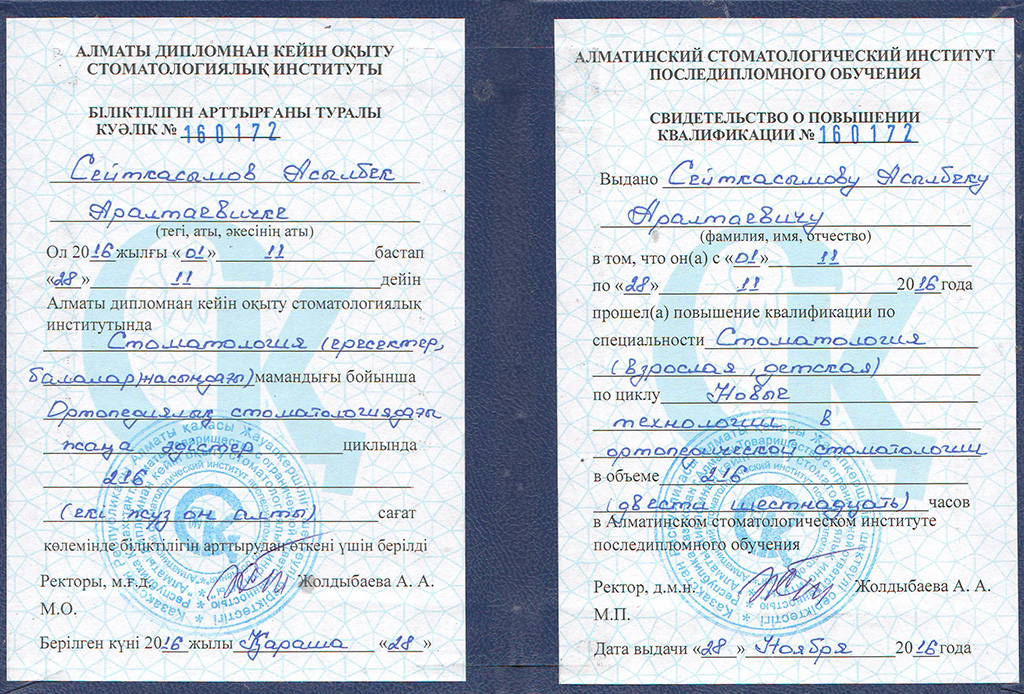 АЛМАТЫ ДИПЛОМНАН КЕЙІН ОҚЫТУ
СТОМАТОЛОГИЯЛЫҚ ИНСТИТУТЫ
БІЛІКТІЛІГІН АРТТЫРҒАНЫ ТУРАЛЫ
КУӘЛІК № 160172
Сейткасымов Асылбек
Аралтаевичке
(тегі, аты, әкесінің аты)
Ол 2016 жылғы «01» 11 бастап
«28» 11 дейін
Алматы дипломнан кейін оқыту стоматологиялық
институтында
Стоматология (ересектер,
балалар жасындағы) мамандығы бойынша
Ортопедиялық стоматологиядағы
жаңа әдістер циклында
216
(екі жүз он алты) сағат
көлемінде біліктілігін арттырудан өткені үшін берілді
Ректоры, м.ғ.д. Жолдыбаева А. А.
М.О.
Берілген күні 2016 жылы Қараша «28»
АЛМАТИНСКИЙ СТОМАТОЛОГИЧЕСКИЙ ИНСТИТУТ
ПОСЛЕДИПЛОМНОГО ОБУЧЕНИЯ
СВИДЕТЕЛЬСТВО О ПОВЫШЕНИИ
КВАЛИФИКАЦИИ № 160172
Выдано Сейткасымову Асылбеку
Аралтаевичу
(фамилия, имя, отчество)
в том, что он(а) с «01» 11
по «28» 11 2016 года
прошел(а) повышение квалификации по
специальности Стоматология
(взрослая, детская)
по циклу Новые
технологии в
ортопедической стоматологии
в объеме 216
(двести шестнадцать) часов
в Алматинском стоматологическом институте
последипломного обучения
Ректор, д.м.н. Жолдыбаева А. А.
М.П.
Дата выдачи «28» Ноября 2016 года